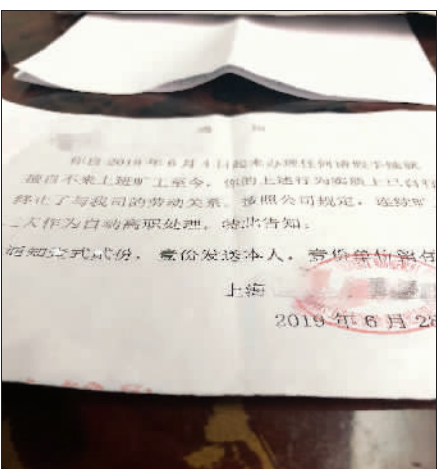 通 知
你自2019年6月4日起未办理任何请假手续就
擅自不来上班旷工至今，你的上述行为实质上已自行
终止了与我司的劳动关系。按照公司规定，连续旷
二天作为自动离职处理。特此告知：
通知壹式贰份，壹份发送本人，壹份单位留存
上海
2019年6月28